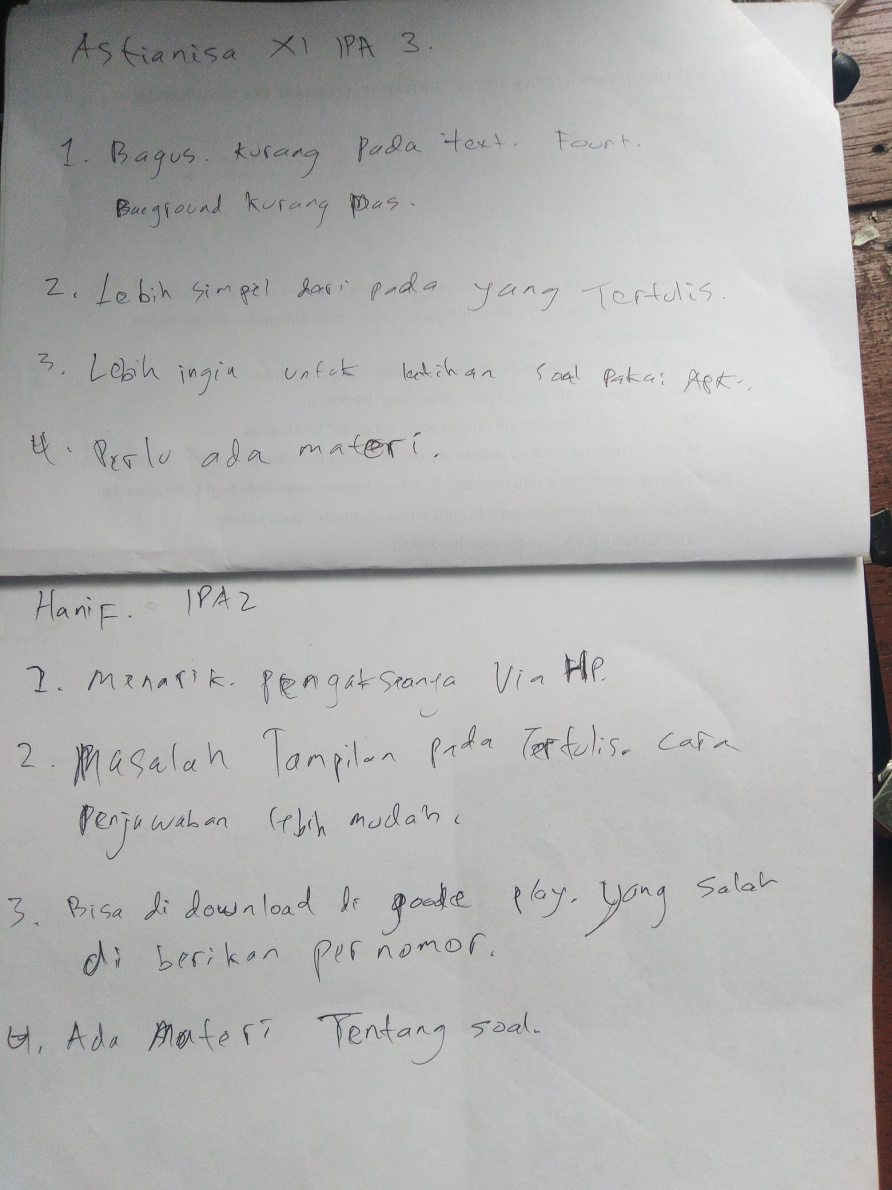 Astianisa XI IPA 3.
1. Bagus. kurang pada text. Fount.
Bacground kurang pas.
2. Lebih simpel dari pada yang Tertulis.
3. Lebih ingin untuk latihan soal pakai Apk.
4. Perlu ada materi.
Hanif. IPA2
1. Menarik. pengaksesanya Via HP.
2. Masalah Tampilan pada Tertulis. cara
penjawaban lebih mudah.
3. Bisa di download di google play. yang salah
di berikan per nomor.
4. Ada Materi Tentang soal.